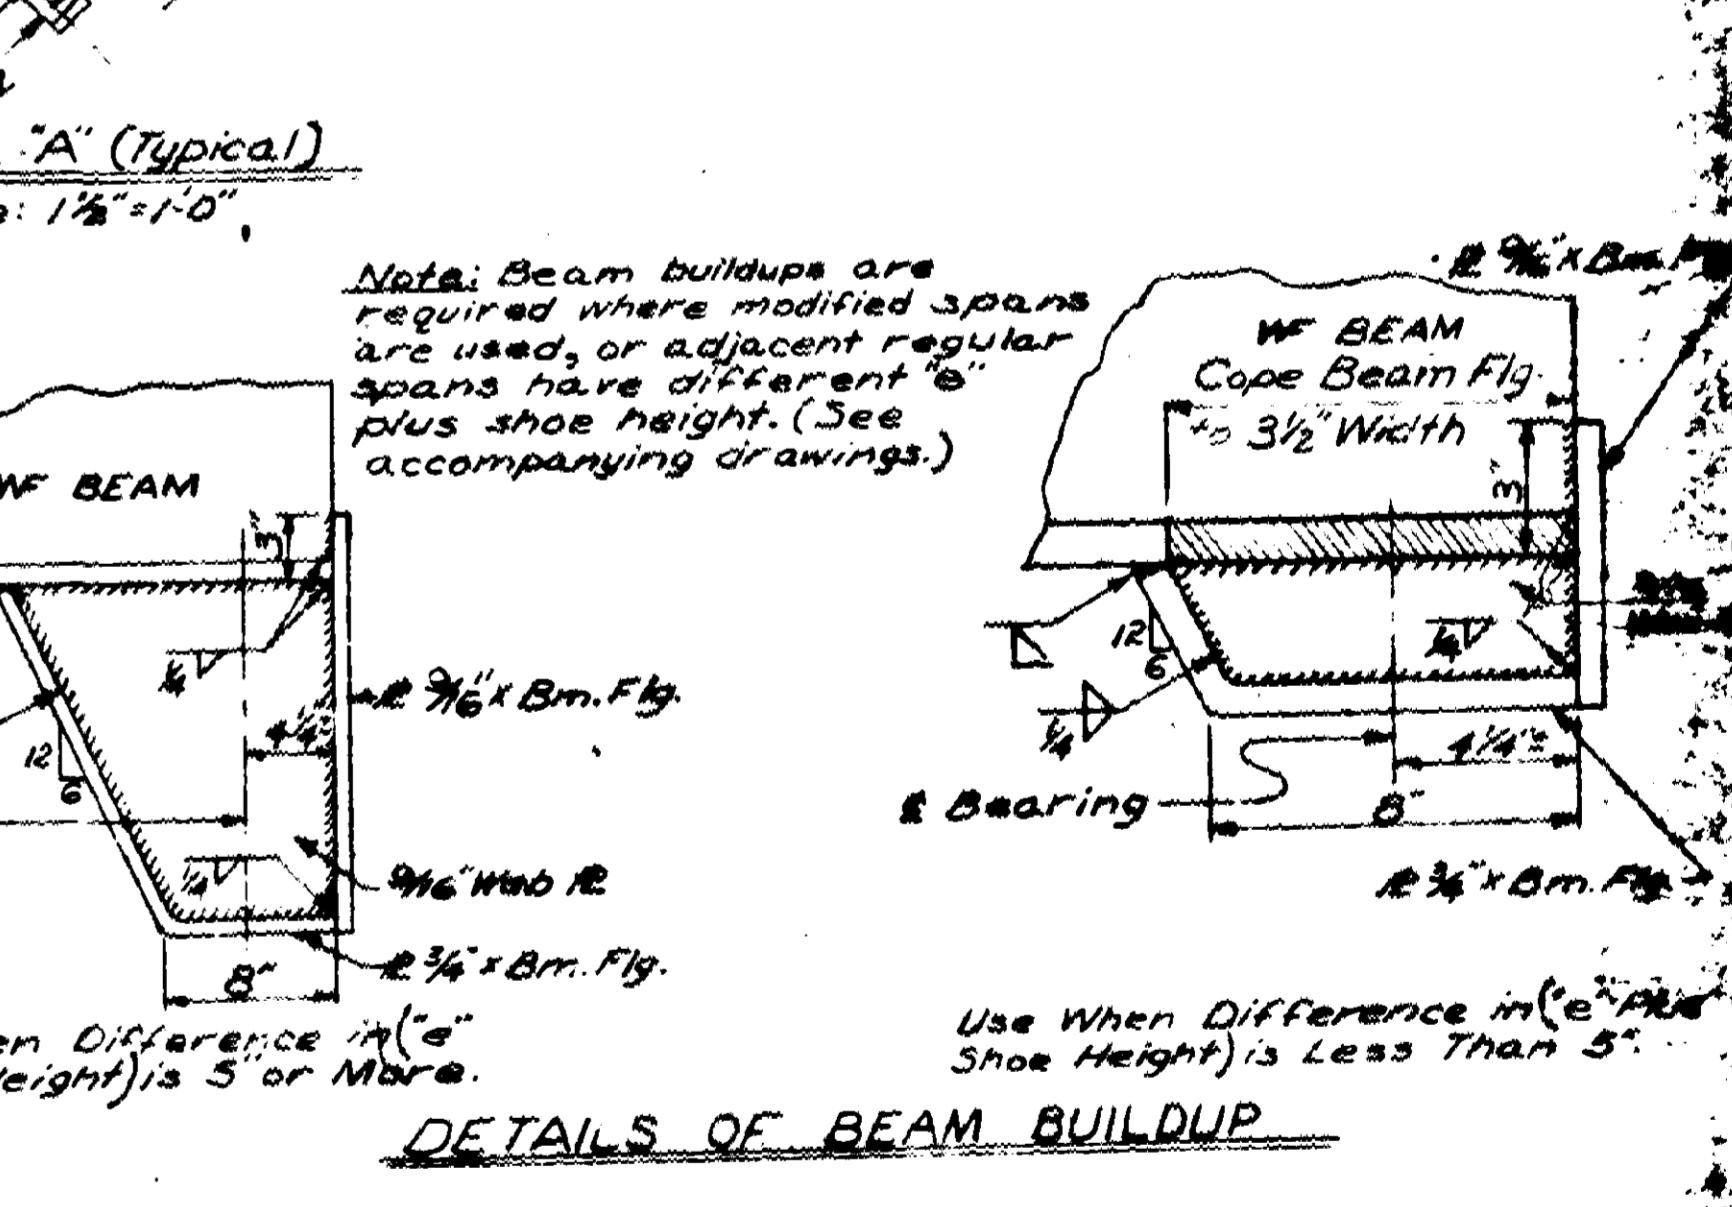 "A" (Typical)
: 1½"=1'-0"
Note: Beam buildups are
required where modified spans
are used, or adjacent regular
spans have different "e"
plus shoe height. (See
accompanying drawings.)
WF BEAM
3"
¼
℄ 9/16" x Bm. Flg.
4¼"
12
6
¼
9/16" Web ℄
℄ ¾" x Bm. Flg.
8"
Difference in ("e"
Height) is 5" or More.
℄ 9/16" x Bm.
WF BEAM
Cope Beam Flg.
to 3½" Width
3"
12
6
¼
¼
4¼"±
℄ Bearing
8"
℄ ¾" x Bm. Flg.
Use When Difference in ("e" Plus
Shoe Height) is Less Than 5".
DETAILS OF BEAM BUILDUP